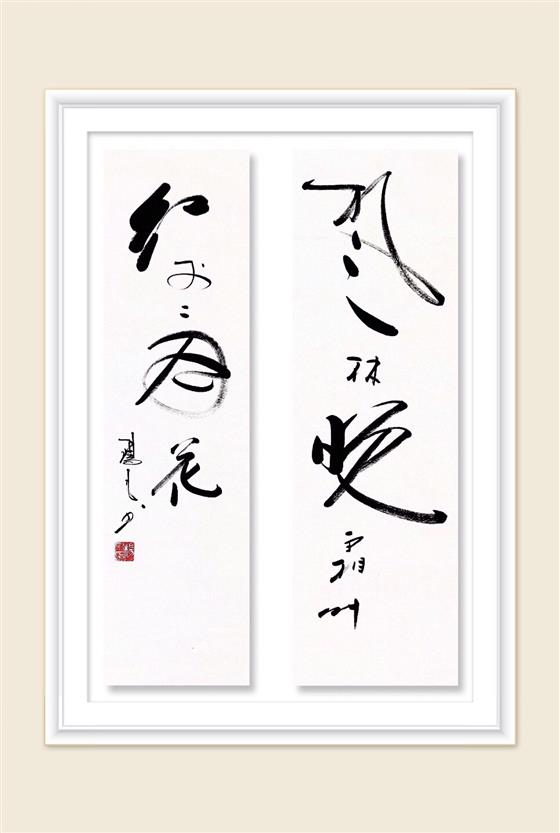 枫林晚霜叶
红于二月花